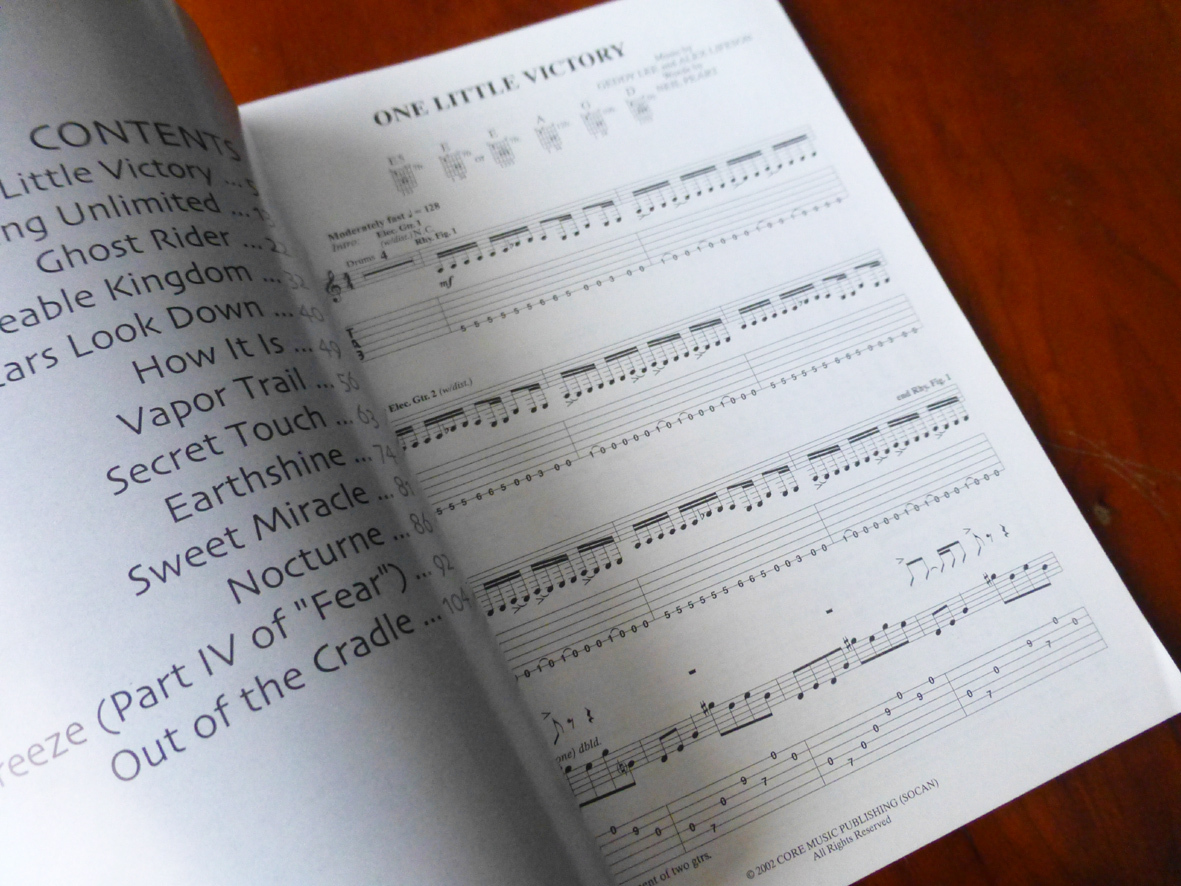 CONTENTS
Little Victory ... 5
ng Unlimited ...
Ghost Rider ... 22
eable Kingdom ... 32
ars Look Down ... 40
How It Is ... 49
Vapor Trail ... 56
Secret Touch ... 63
Earthshine ... 74
Sweet Miracle ... 81
Nocturne ... 86
reeze (Part IV of "Fear") ... 92
Out of the Cradle ... 104
ONE LITTLE VICTORY
Music by
GEDDY LEE and ALEX LIFESON
Words by
NEIL PEART
E5 E or E A G D
Moderately fast ♩ = 128
Intro: Elec. Gtr. 1
(w/dist.) N.C.
Drums 4 Rhy. Fig. 1
mf
Elec. Gtr. 2 (w/dist.)
end Rhy. Fig. 1
one) dbld.
ent of two gtrs.
© 2002 CORE MUSIC PUBLISHING (SOCAN)
All Rights Reserved